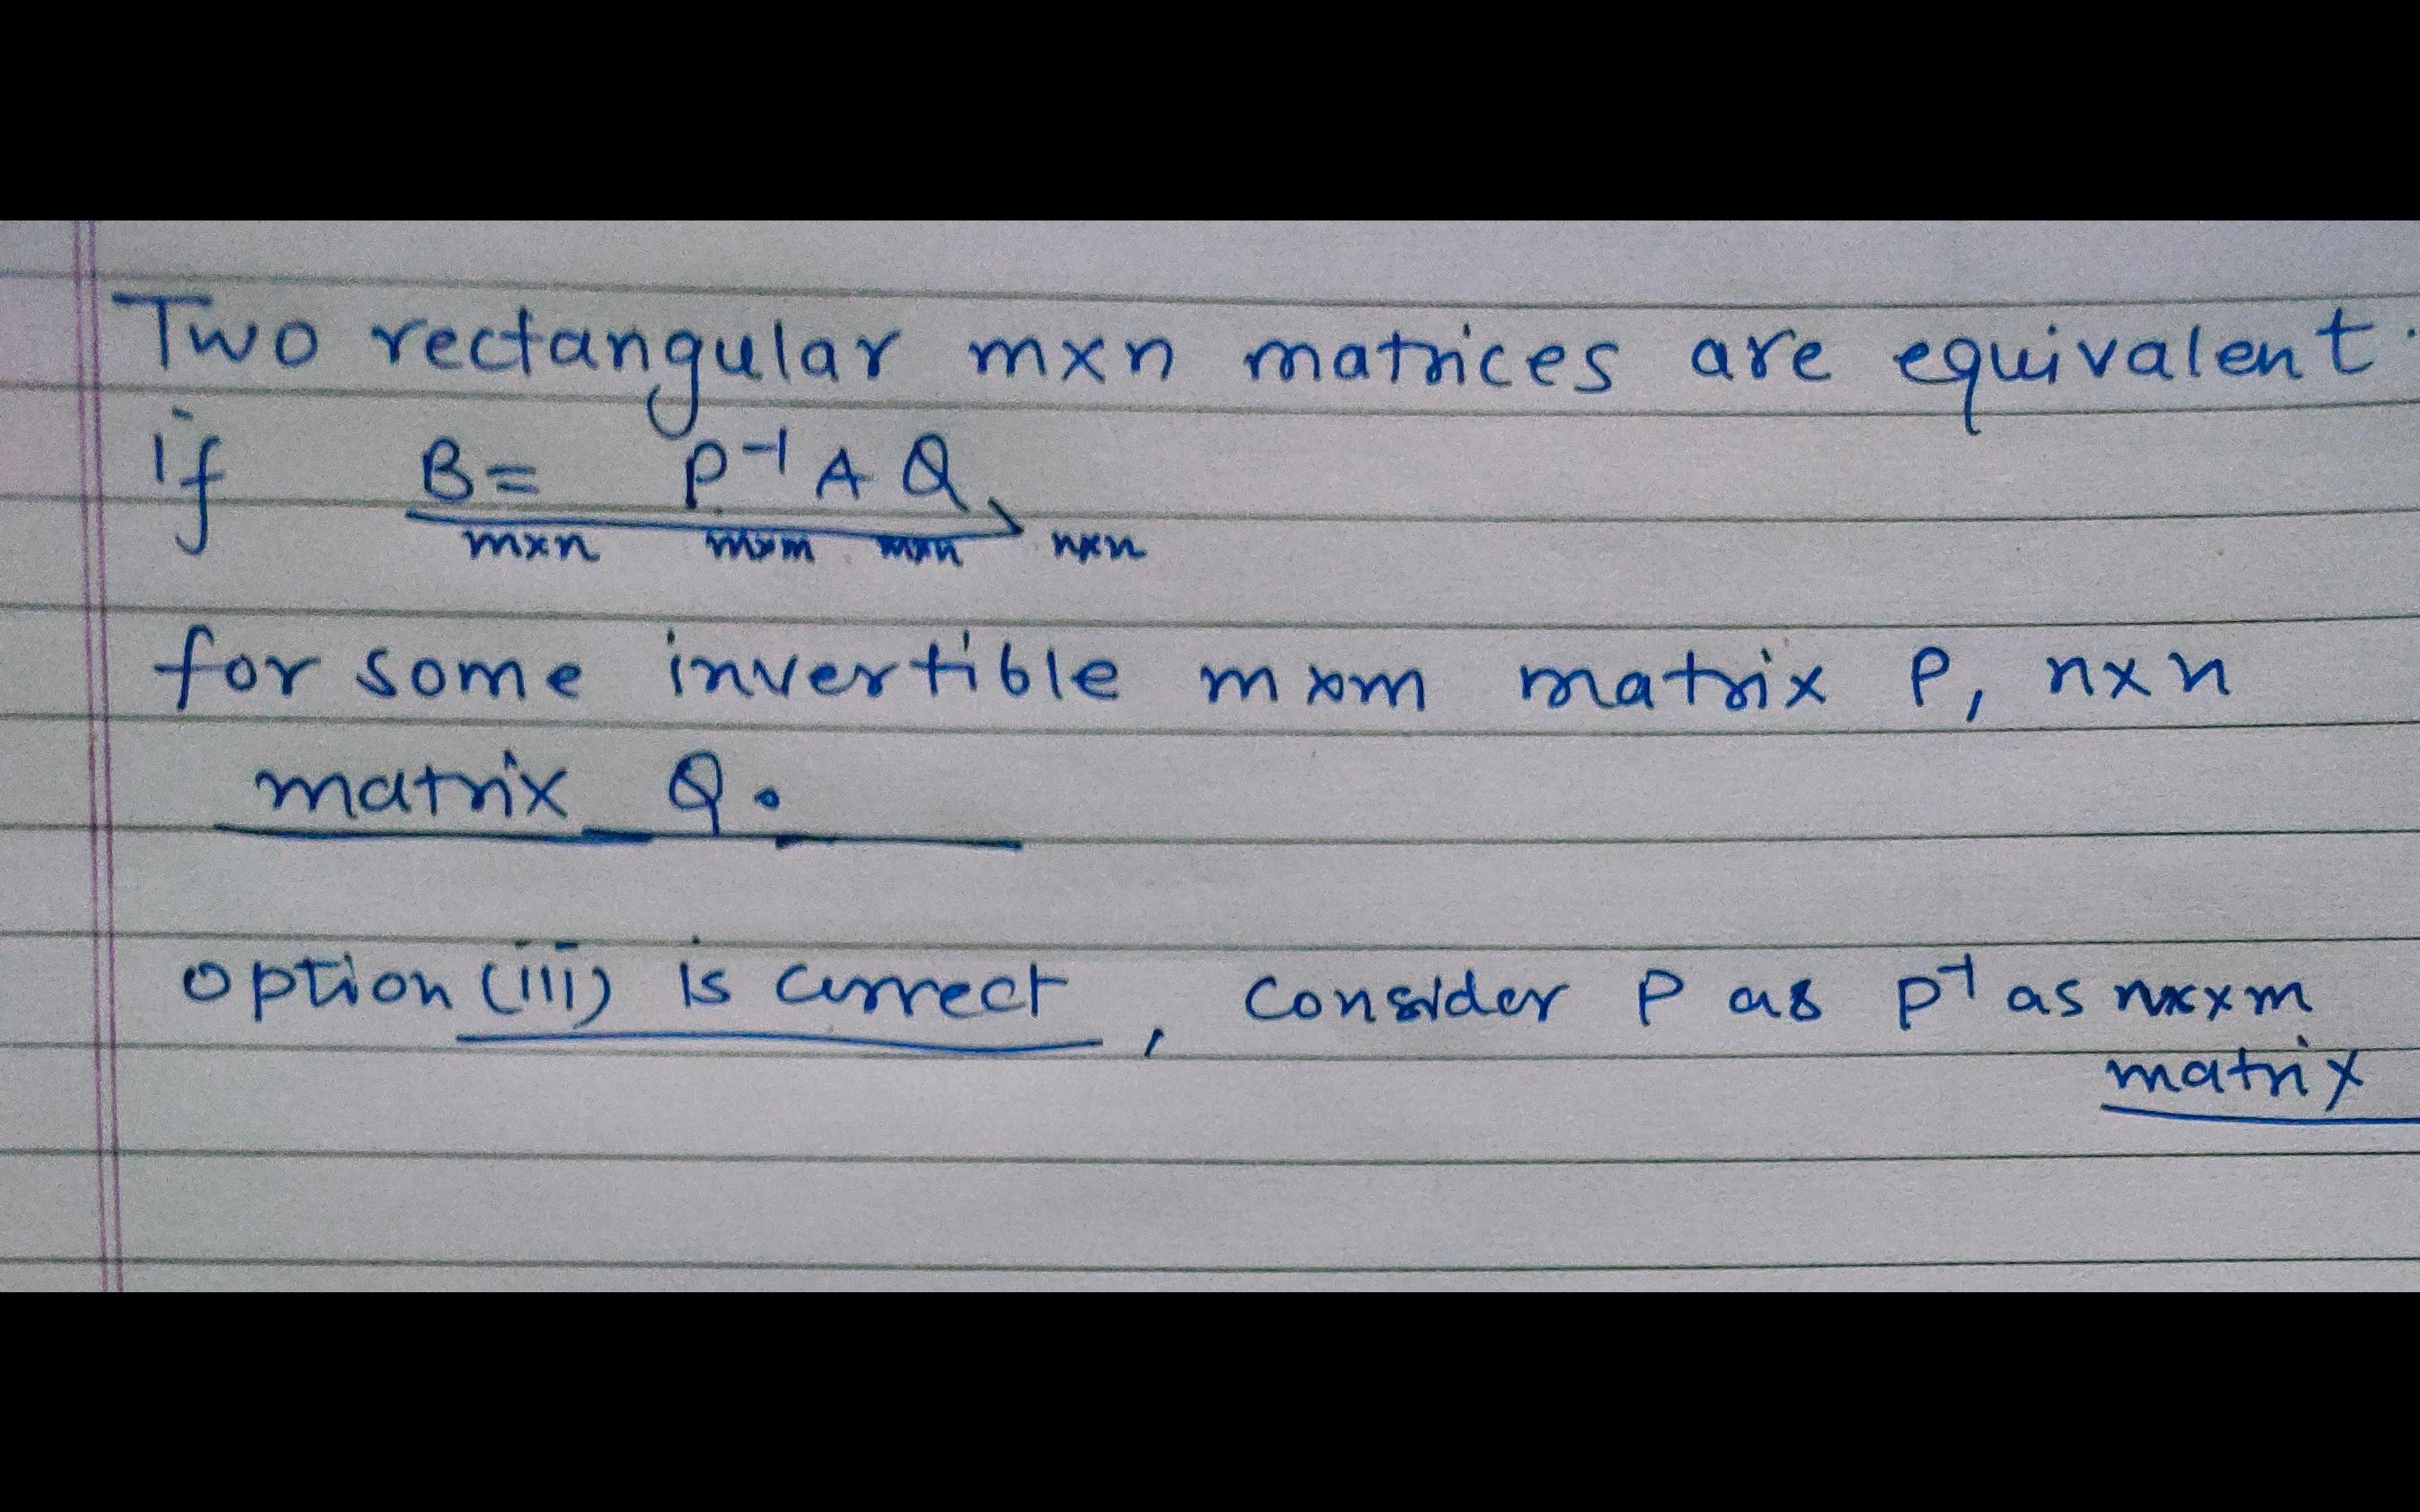 Two rectangular mxn matrices are equivalent.
if B = P⁻¹ A Q
mxn mxm mxn nxn
for some invertible mxm matrix P, nxn
matrix Q.
option (iii) is correct, Consider P as P⁻¹ as
matrix